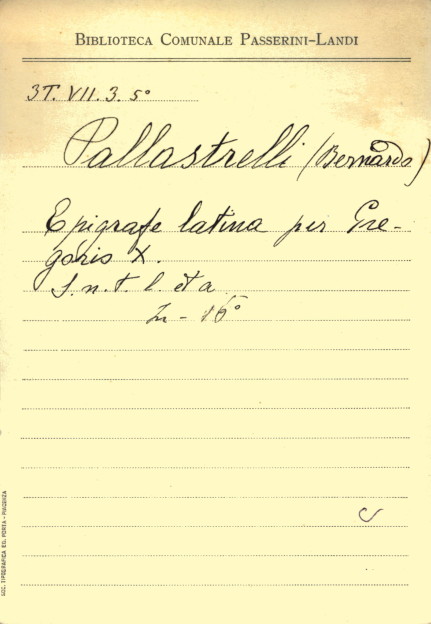 BIBLIOTECA COMUNALE PASSERINI-LANDI
3T. VII. 3. 5°
Pallastrelli (Bernardo)
Epigrafe latina per Gre-
gorio X.
S. n. t. l. et a
16°
SOC. TIPOGRAFICA ED. PORTA - PIACENZA